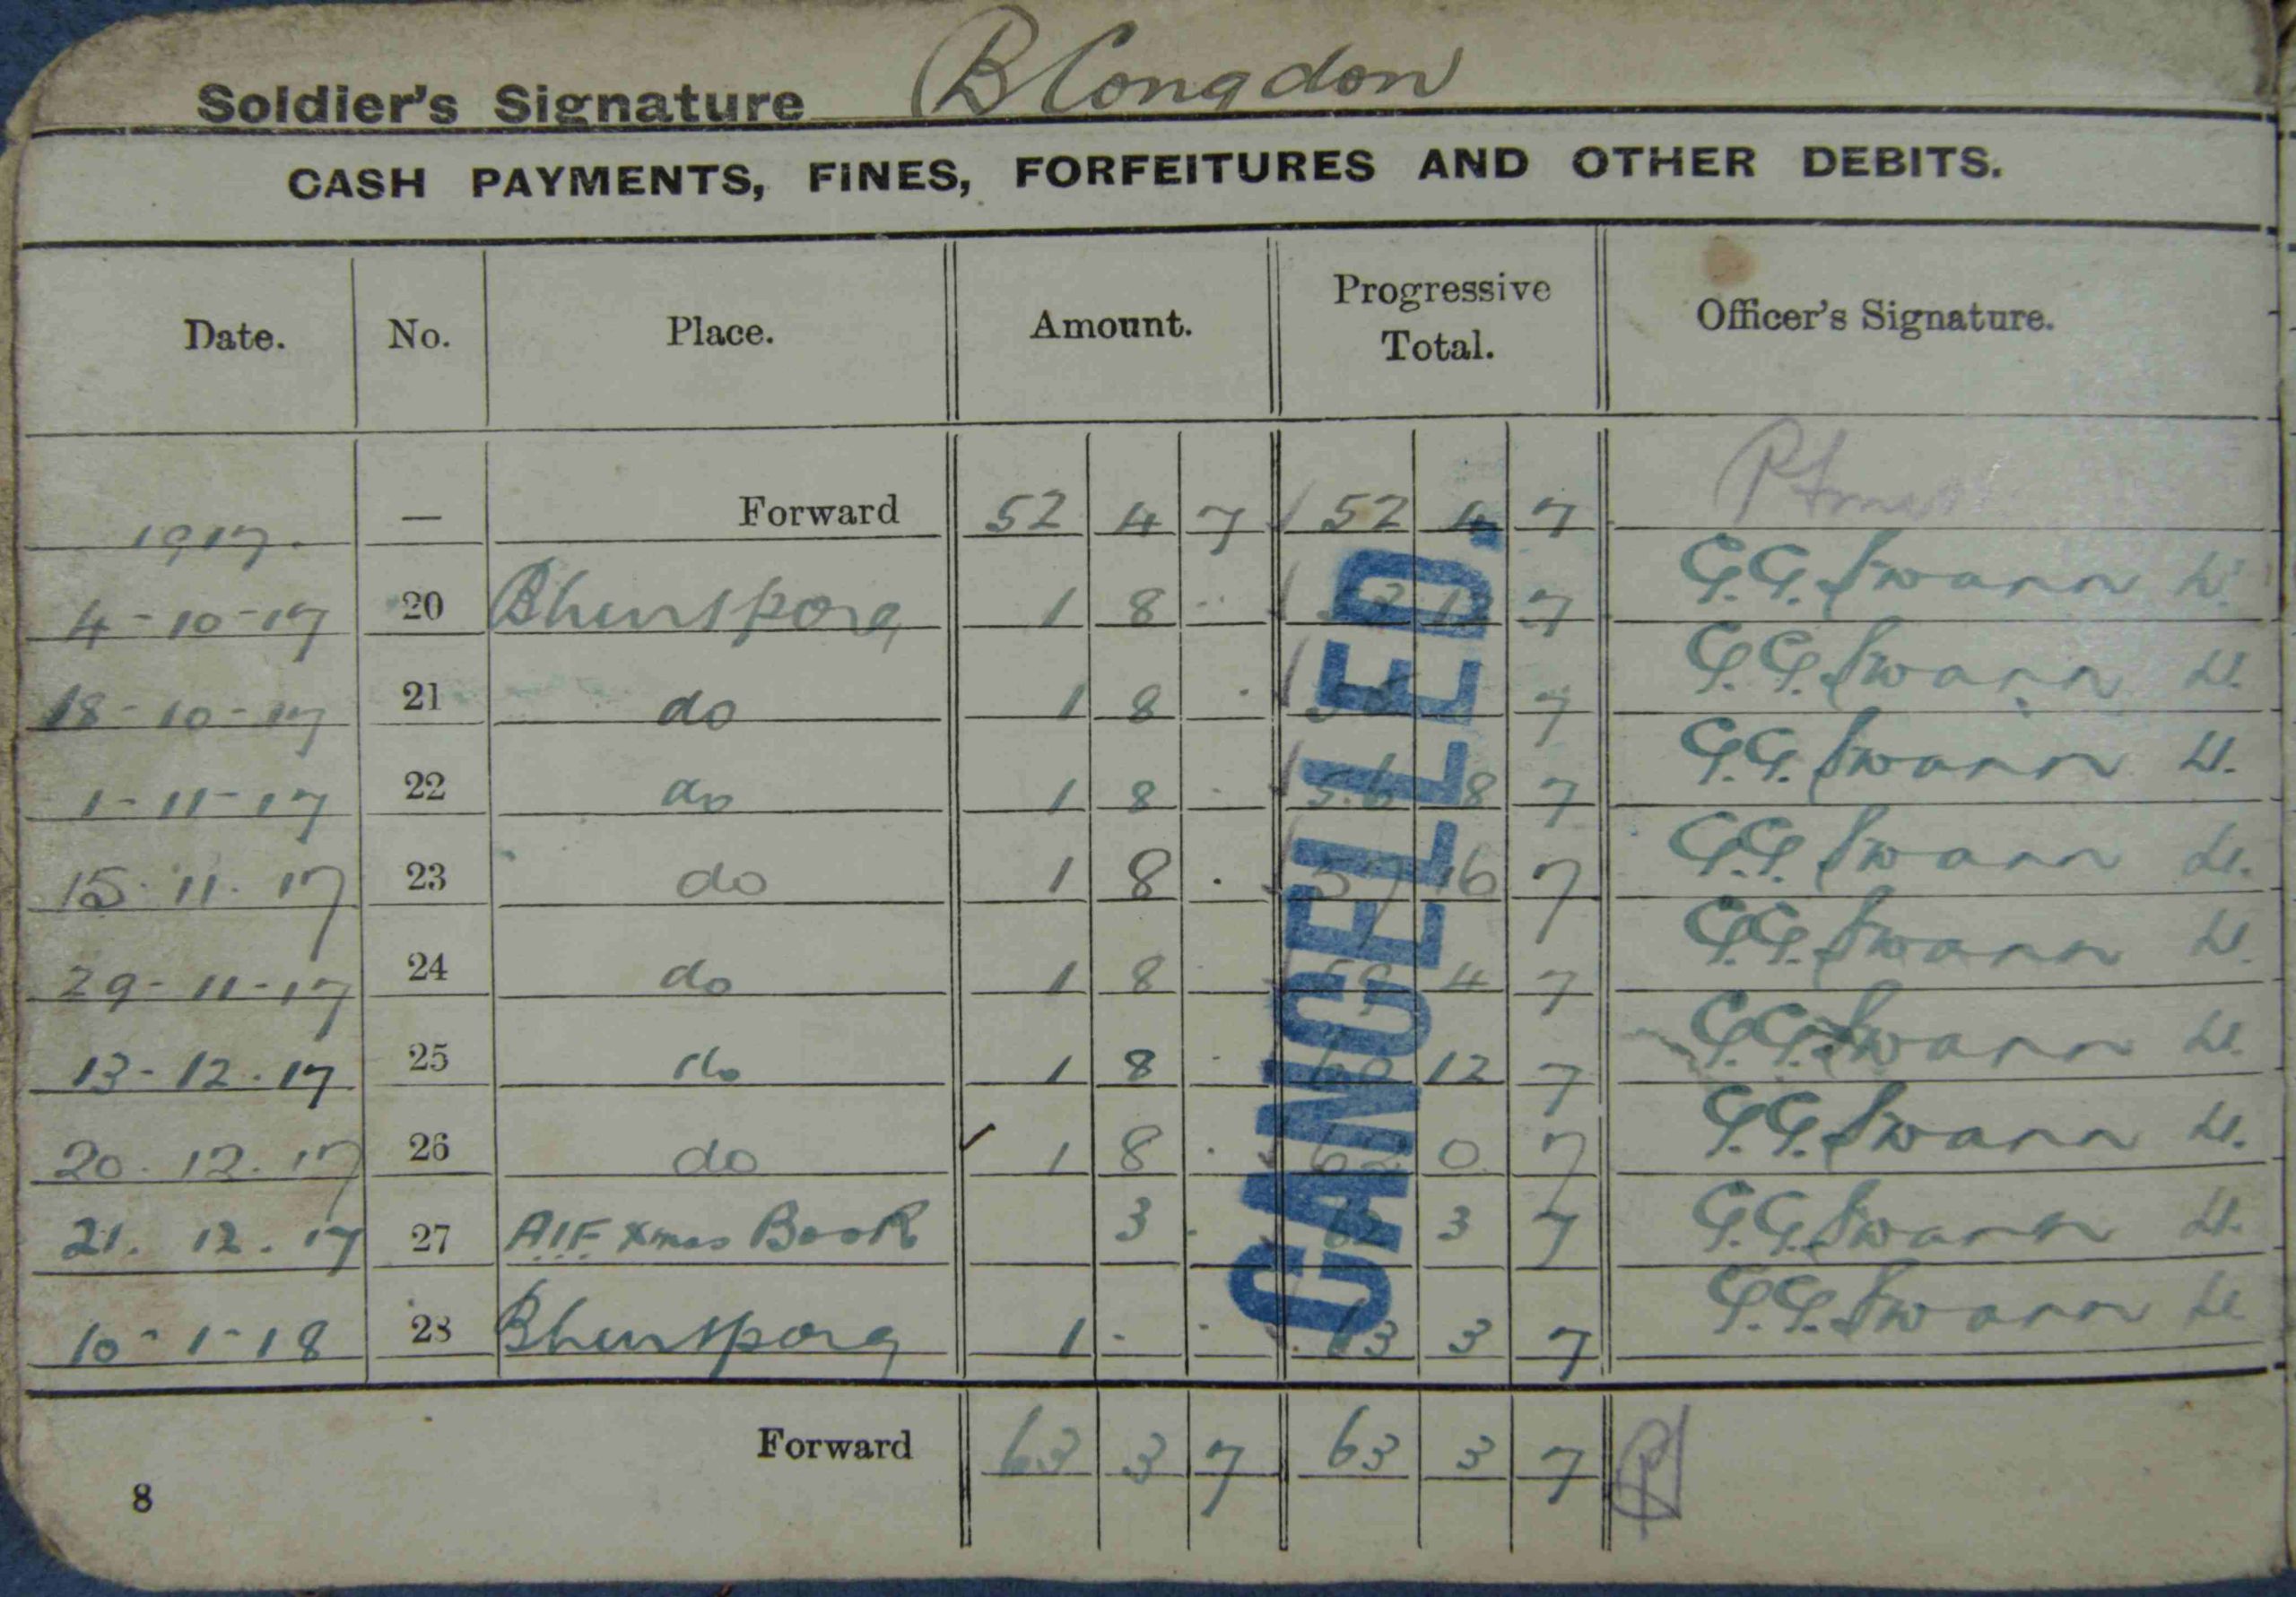 Soldier's Signature B Congdon
CASH PAYMENTS, FINES, FORFEITURES AND OTHER DEBITS.
Date. No. Place. Amount. Progressive Total. Officer's Signature.
1917. — Forward 52 4 7 52 4 7
4-10-17 20 Bhurtpore 1 8 - 7 G.G. Swann Lt.
18-10-17 21 do 1 8 - 7 G.G. Swann Lt.
1-11-17 22 do 1 8 - 56 8 7 G.G. Swann Lt.
15.11.17 23 do 1 8 . 57 16 7 G.G. Swann Lt.
29-11-17 24 do 1 8 - 59 4 7 G.G. Swann Lt.
13-12.17 25 do 1 8 - 60 12 7 G.G. Swann Lt.
20.12.17 26 do 1 8 . 62 0 7 G.G. Swann Lt.
21.12.17 27 A.I.F. Xmas Book 3 - 62 3 7 G.G. Swann Lt.
10-1-18 28 Bhurtpore 1 - - 63 3 7 G.G. Swann Lt
CANCELLED.
Forward 63 3 7 63 3 7
8